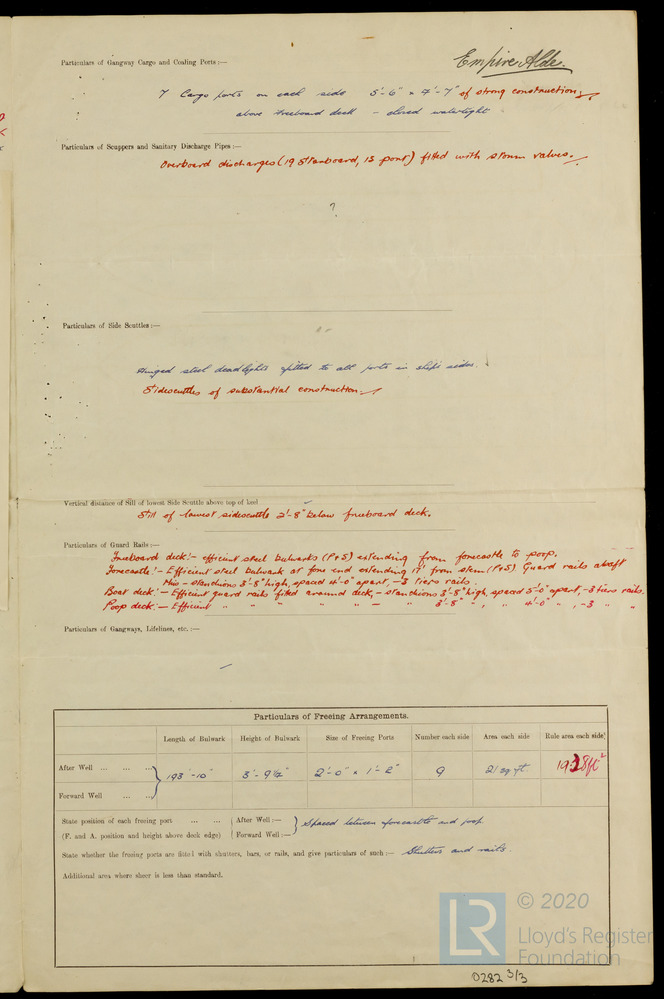 Particulars of Gangway Cargo and Coaling Ports :—
Empire Alde.
7 Cargo ports on each side 5'-6" × 4'-7" of strong construction,
above freeboard deck - closed watertight
Particulars of Scuppers and Sanitary Discharge Pipes :—
Overboard discharges (19 starboard, 13 port) fitted with storm valves.
?
Particulars of Side Scuttles :—
Hinged steel deadlights fitted to all ports in ship's sides.
Sidescuttles of substantial construction.
Vertical distance of Sill of lowest Side Scuttle above top of keel
Sill of lowest sidescuttle 2'-8" below freeboard deck.
Particulars of Guard Rails :—
Freeboard deck :- efficient steel bulwarks (P&S) extending from forecastle to poop.
Forecastle :- Efficient steel bulwark at fore end extending 17' from stem (P&S) Guard rails abaft
this - stanchions 3'-8" high, spaced 4'-0" apart, -3 tiers rails.
Boat deck :- Efficient guard rails fitted around deck, - stanchions 3'-8" high, spaced 5'-0" apart, -3 tiers rails.
Poop deck :- Efficient " " " " " — " 3'-8" " , " 4'-0" " , -3 " "
Particulars of Gangways, Lifelines, etc. :—
Particulars of Freeing Arrangements.
Length of Bulwark Height of Bulwark Size of Freeing Ports Number each side Area each side Rule area each side
After Well ... ... ...
193'-10" 3'-9½" 2'-0" × 1'-2" 9 21 sq. ft. 19.38 ft²
Forward Well ... ...
State position of each freeing port ... ... After Well :— Spaced between forecastle and poop
(F. and A. position and height above deck edge) Forward Well :—
State whether the freeing ports are fitted with shutters, bars, or rails, and give particulars of such :— Shutters and rails.
Additional area where sheer is less than standard.
LR
© 2020
Lloyd's Register
Foundation
0282 3/3